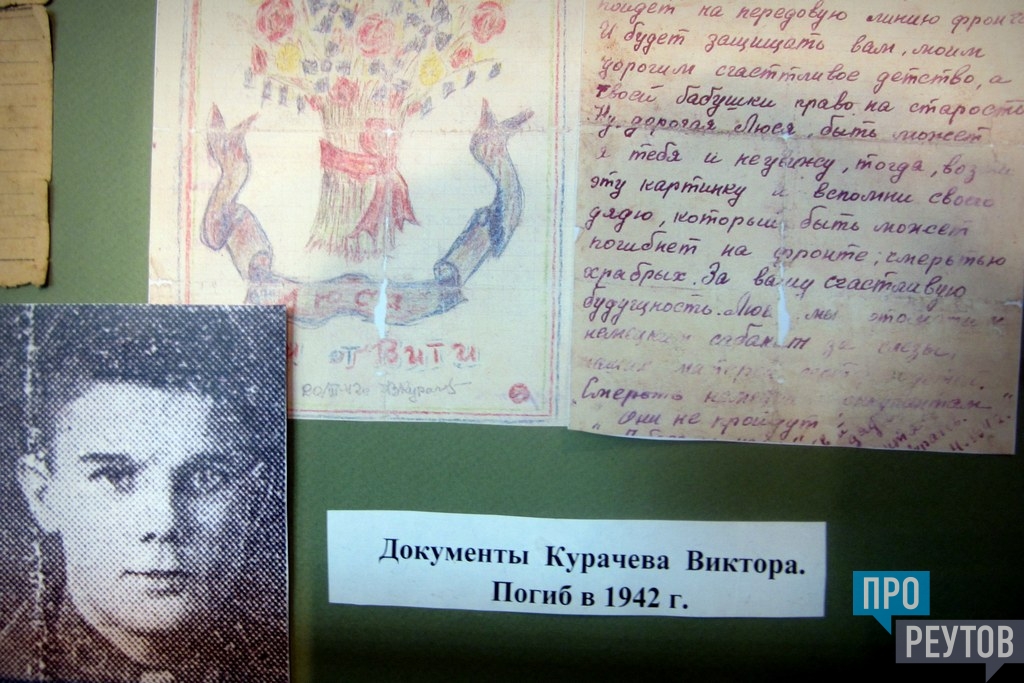 пойдет на передовую линию фронта
И будет защищать вам, моим
дорогим счасттливое детство, а
твоей бабушки право на старость
Ну, дорогая Люся, быть может
я тебя и неувижу, тогда, воз
эту картинку и вспомни своего
дядю, который быть может
погибнет на фронте, смертью
храбрых. За вашу счастливую
будущность. Люся мы
за слезы,
наших матерей
Смерть оккупантам
"Они не пройдут"
Люся
от Вити
Документы Курачева Виктора.
Погиб в 1942 г.
ПРО
РЕУТОВ